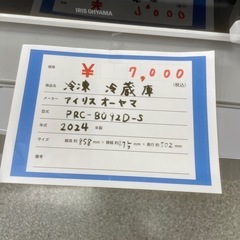 IRIS OHYAMA
価格 ¥ 7,000
商品名 冷凍 冷蔵庫 (税込)
メーカー アイリスオーヤマ
型式 PRC-B092D-S
年式 2024 年製
サイズ 縦高 約 858 mm × 横幅 約 475 mm × 奥行 約 502 mm